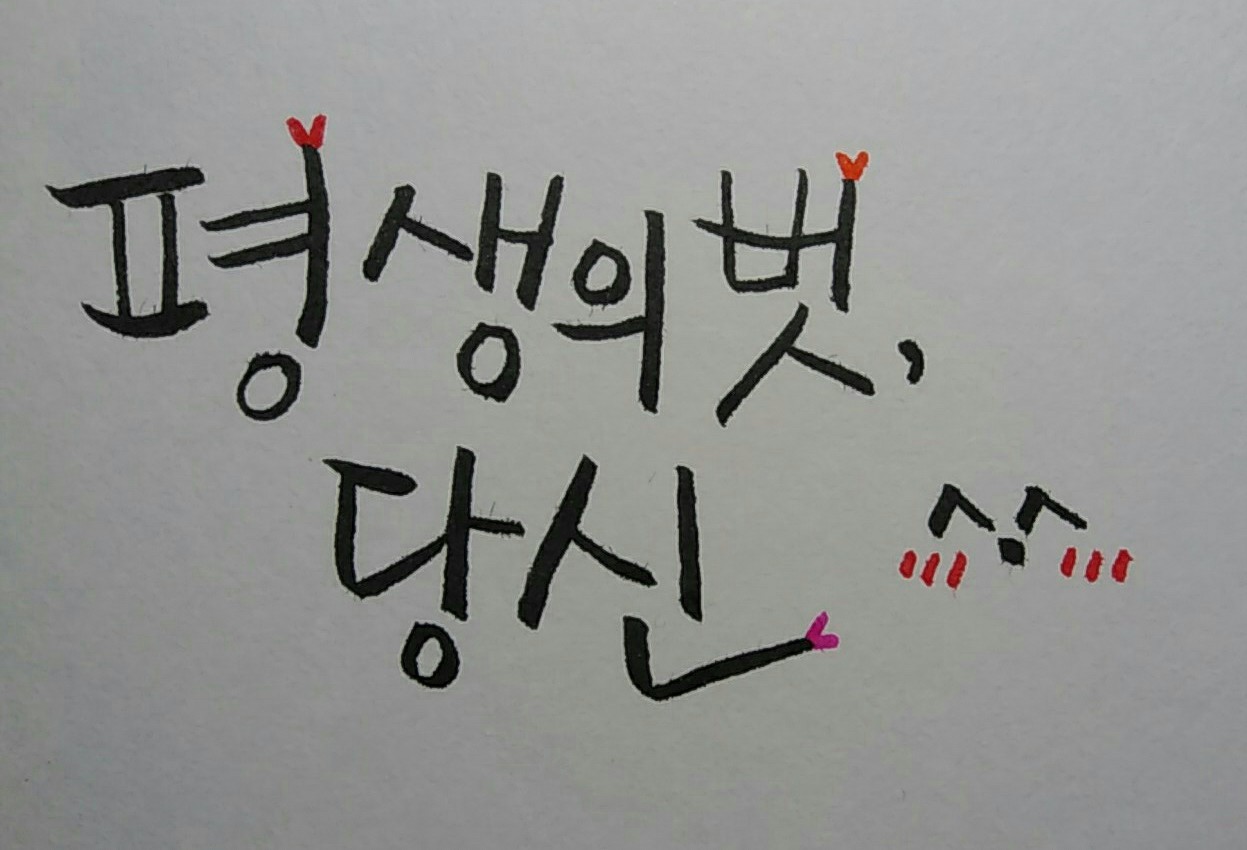 평생의 벗,
당신 ^.^